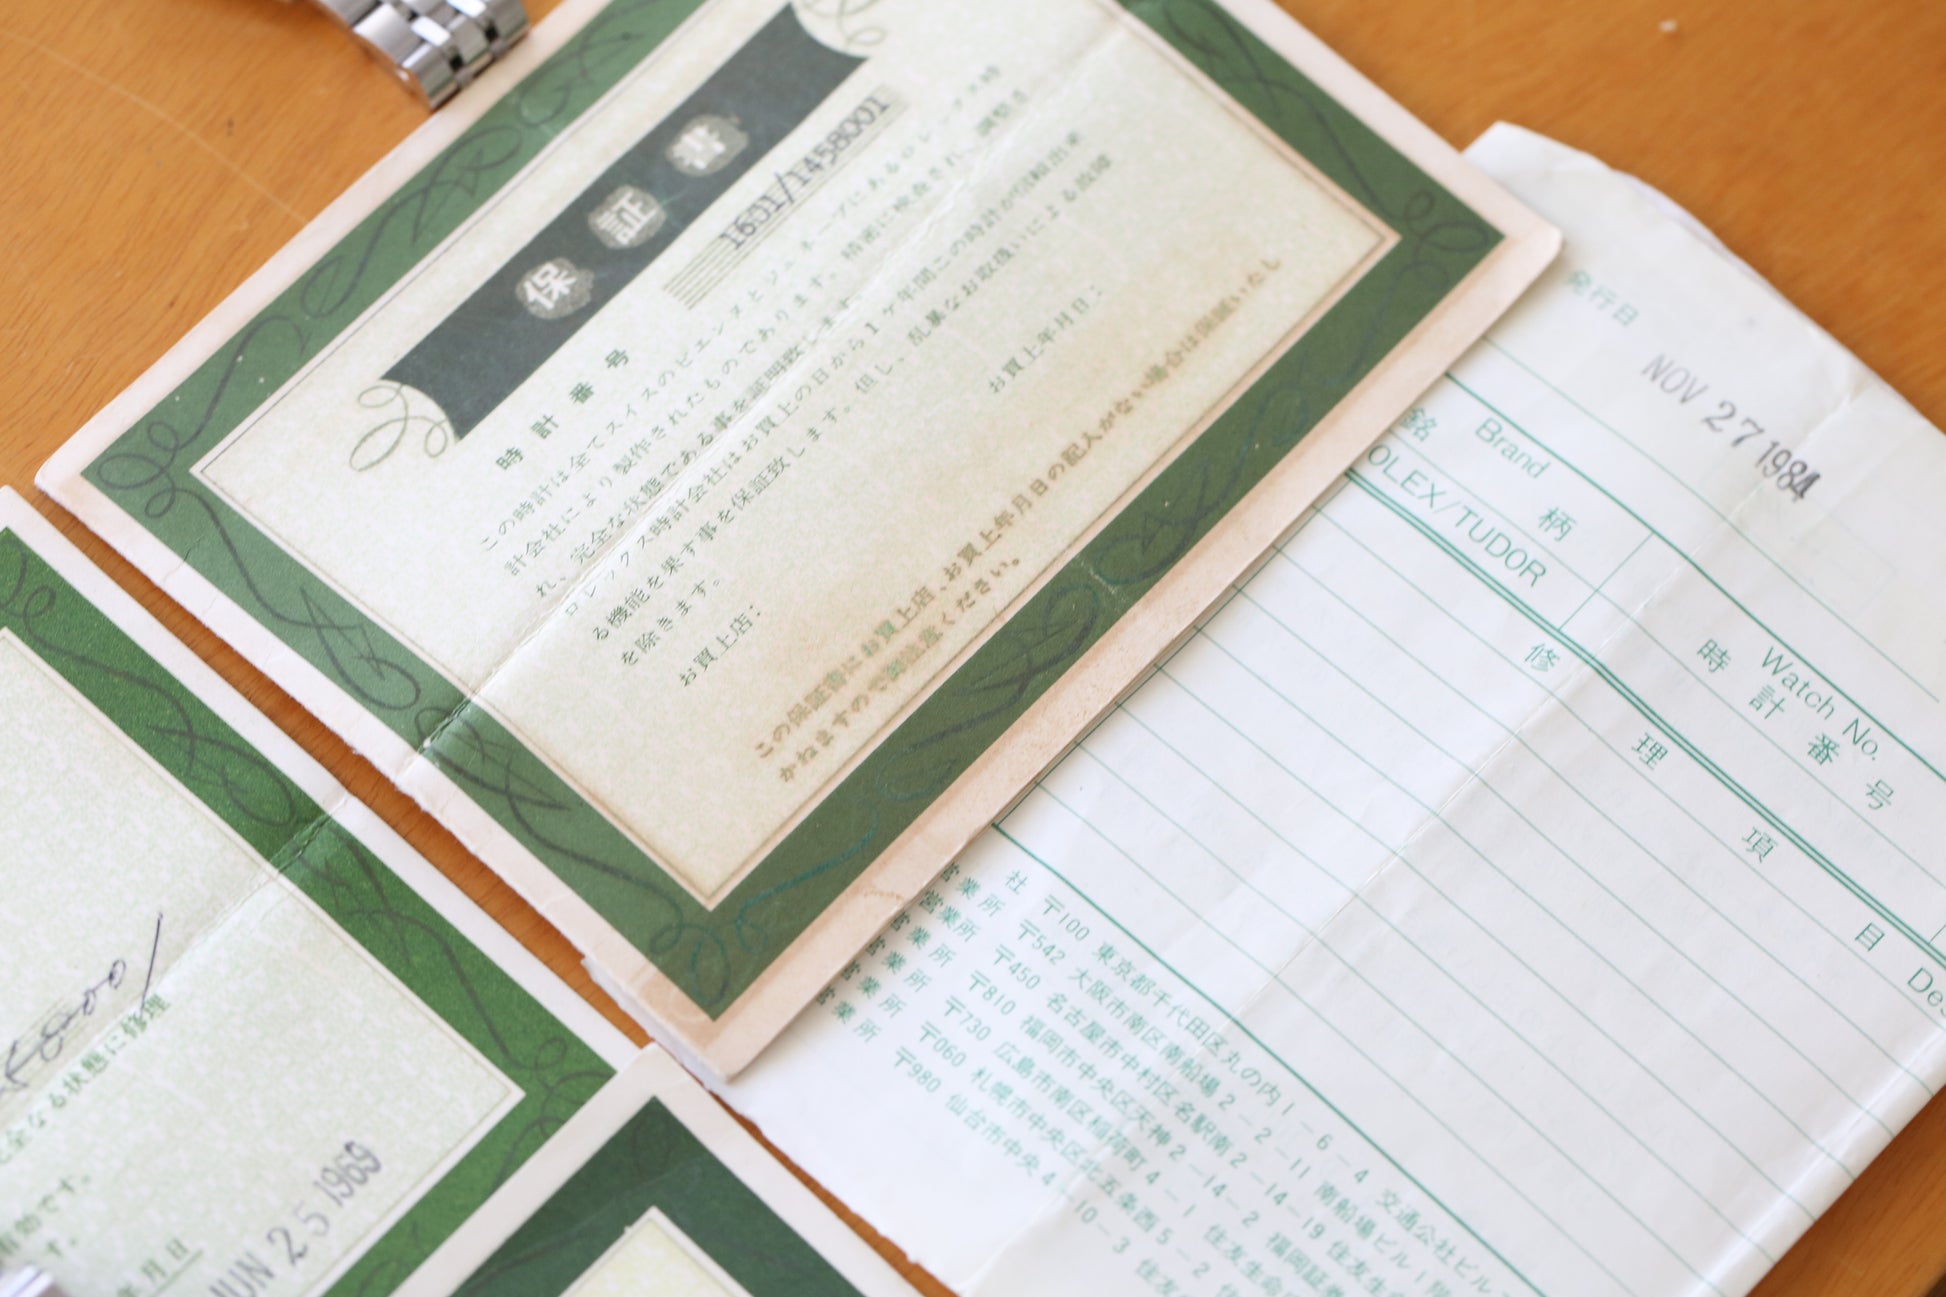 保証書
時計番号
1601/1458001
この時計は全てスイスのビエンヌとジュネーブにあるロレックス時
計会社により製作されたものであります。精密に検査され、調整さ
れ、完全な状態である事を証明致します。
ロレックス時計会社はお買上の日から1ヶ年間この時計が信頼出来
る機能を果す事を保証致します。但し、乱暴なお取扱いによる故障
を除きます。
お買上店: お買上年月日:
この保証書にお買上店、お買上年月日の記入がない場合は保証いたし
かねますので御注意ください。
全なる状態に修理
有効です。
年月日
JUN 25 1969
発行日
NOV 27 1984
銘 Brand 柄
OLEX/TUDOR
Watch No.
時計番号
修理項目 Des
社 〒100 東京都千代田区丸の内1-6-4 交通公社ビル
営業所 〒542 大阪市南区南船場2-2-11 南船場ビル1階
営業所 〒450 名古屋市中村区名駅南2-14-19 住友生
営業所 〒810 福岡市中央区天神2-14-2 福岡証券
営業所 〒730 広島市南区稲荷町4-1 住友生命
営業所 〒060 札幌市中央区北五条西5-2 住
営業所 〒980 仙台市中央4-10-3 住友